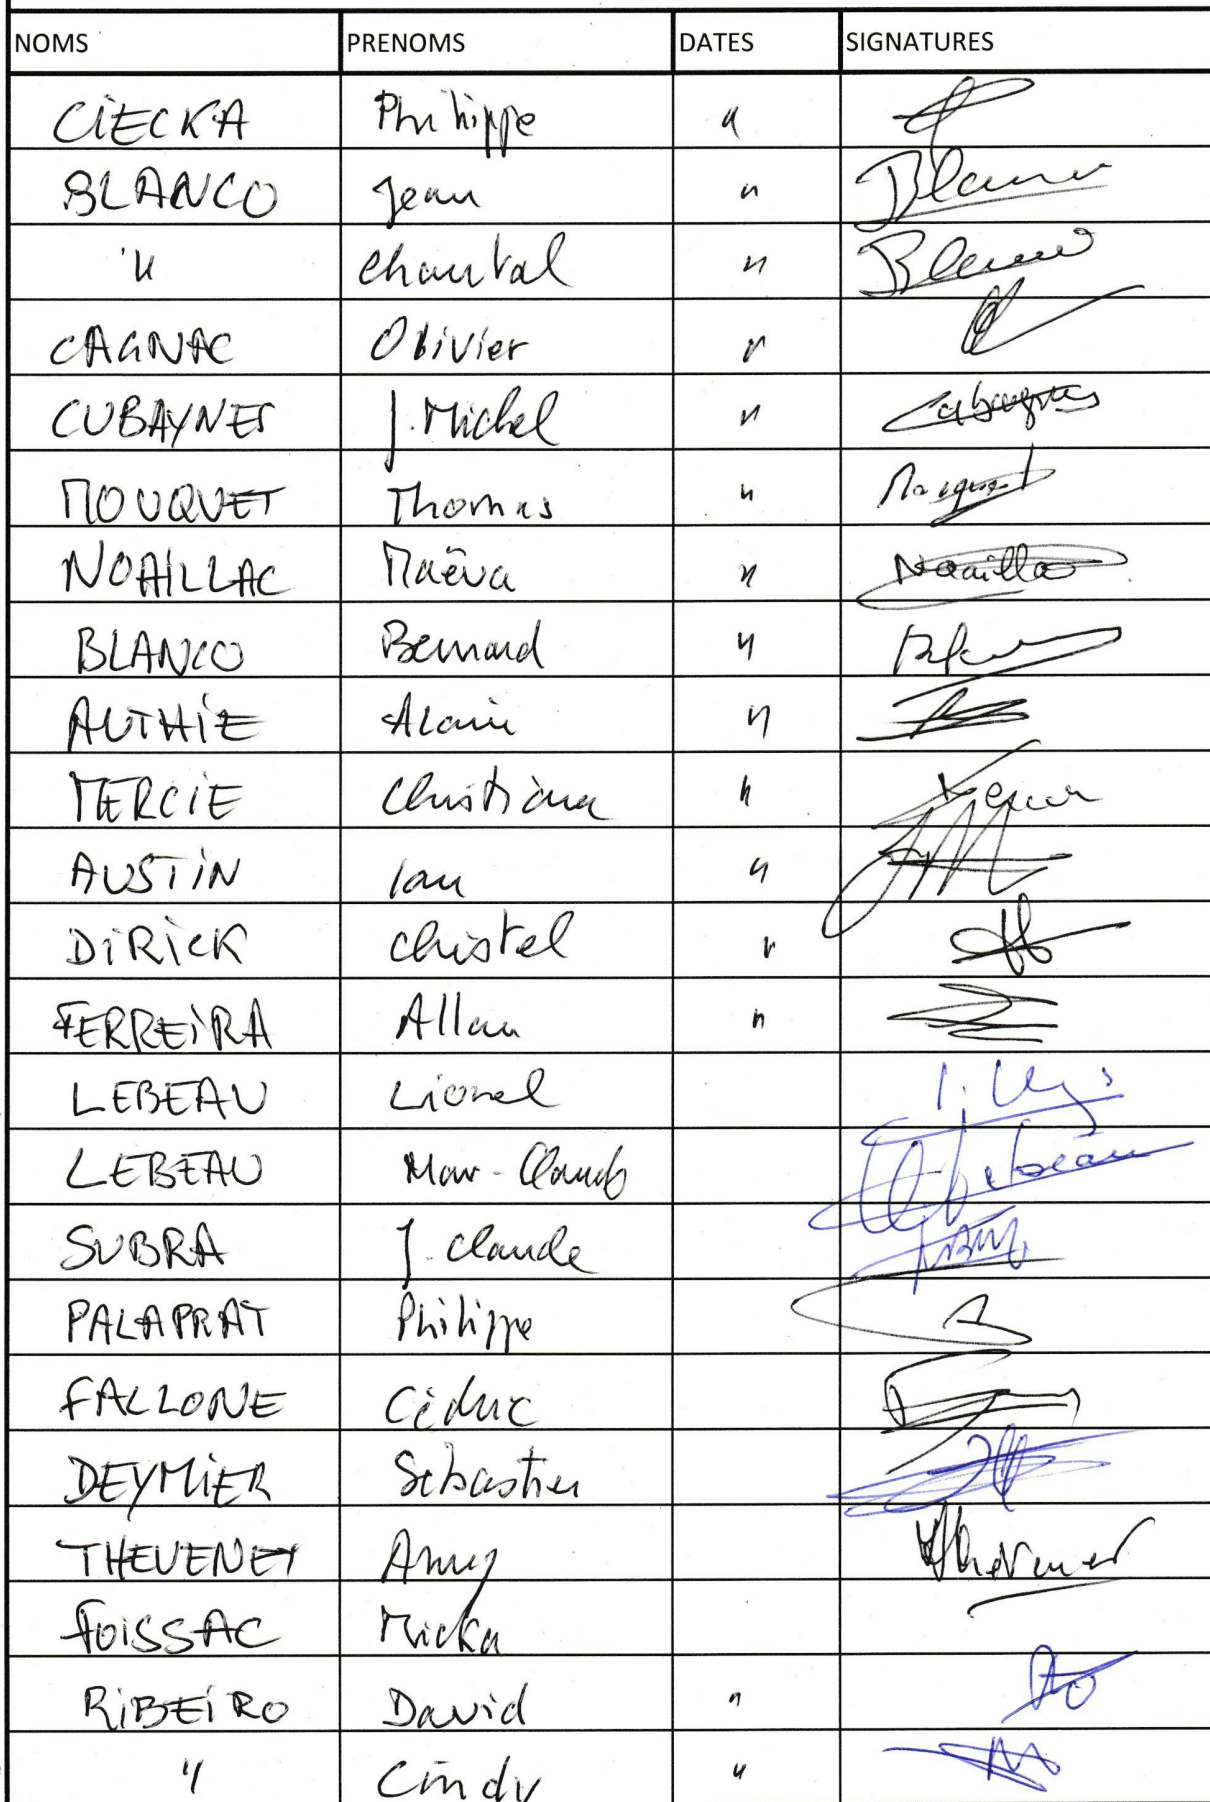 NOMS PRENOMS DATES SIGNATURES
CIECKA Philippe "
BLANCO Jean " Blanco
" Chantal " Blanco
CAGNAC Olivier "
CUBAYNES J. Michel " Cubaynes
MOUQUET Thomas " Mouquet
NOAILLAC Maëva " Noaillac
BLANCO Bernard "
AUTHIE Alain "
MERCIE Christiane "
AUSTIN Ian "
DIRICK Christel "
FERREIRA Allan "
LEBEAU Lionel
LEBEAU Mar-Claude Lebeau
SUBRA J. Claude
PALAPRAT Philippe
FALLONE Cédric
DEYMIER Sébastien
THEVENET Amy Thevenet
FOISSAC Micka
RIBEIRO David "
" Cindy "